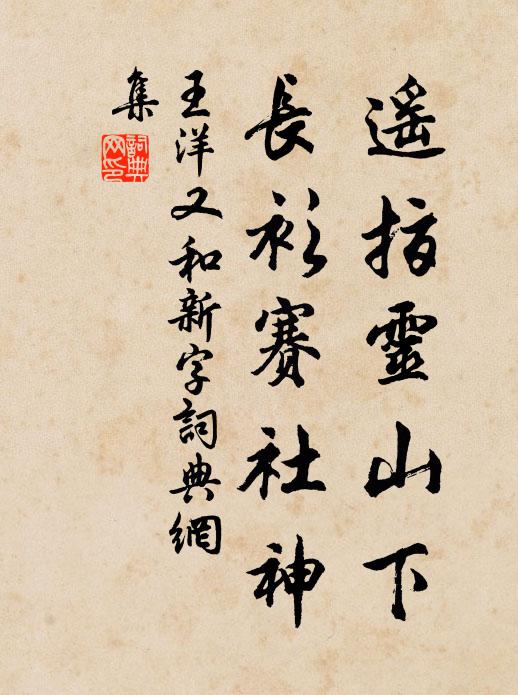 遥指靈山下
長衫賽社神
王洋又和新字詞典網
集
詞典網印